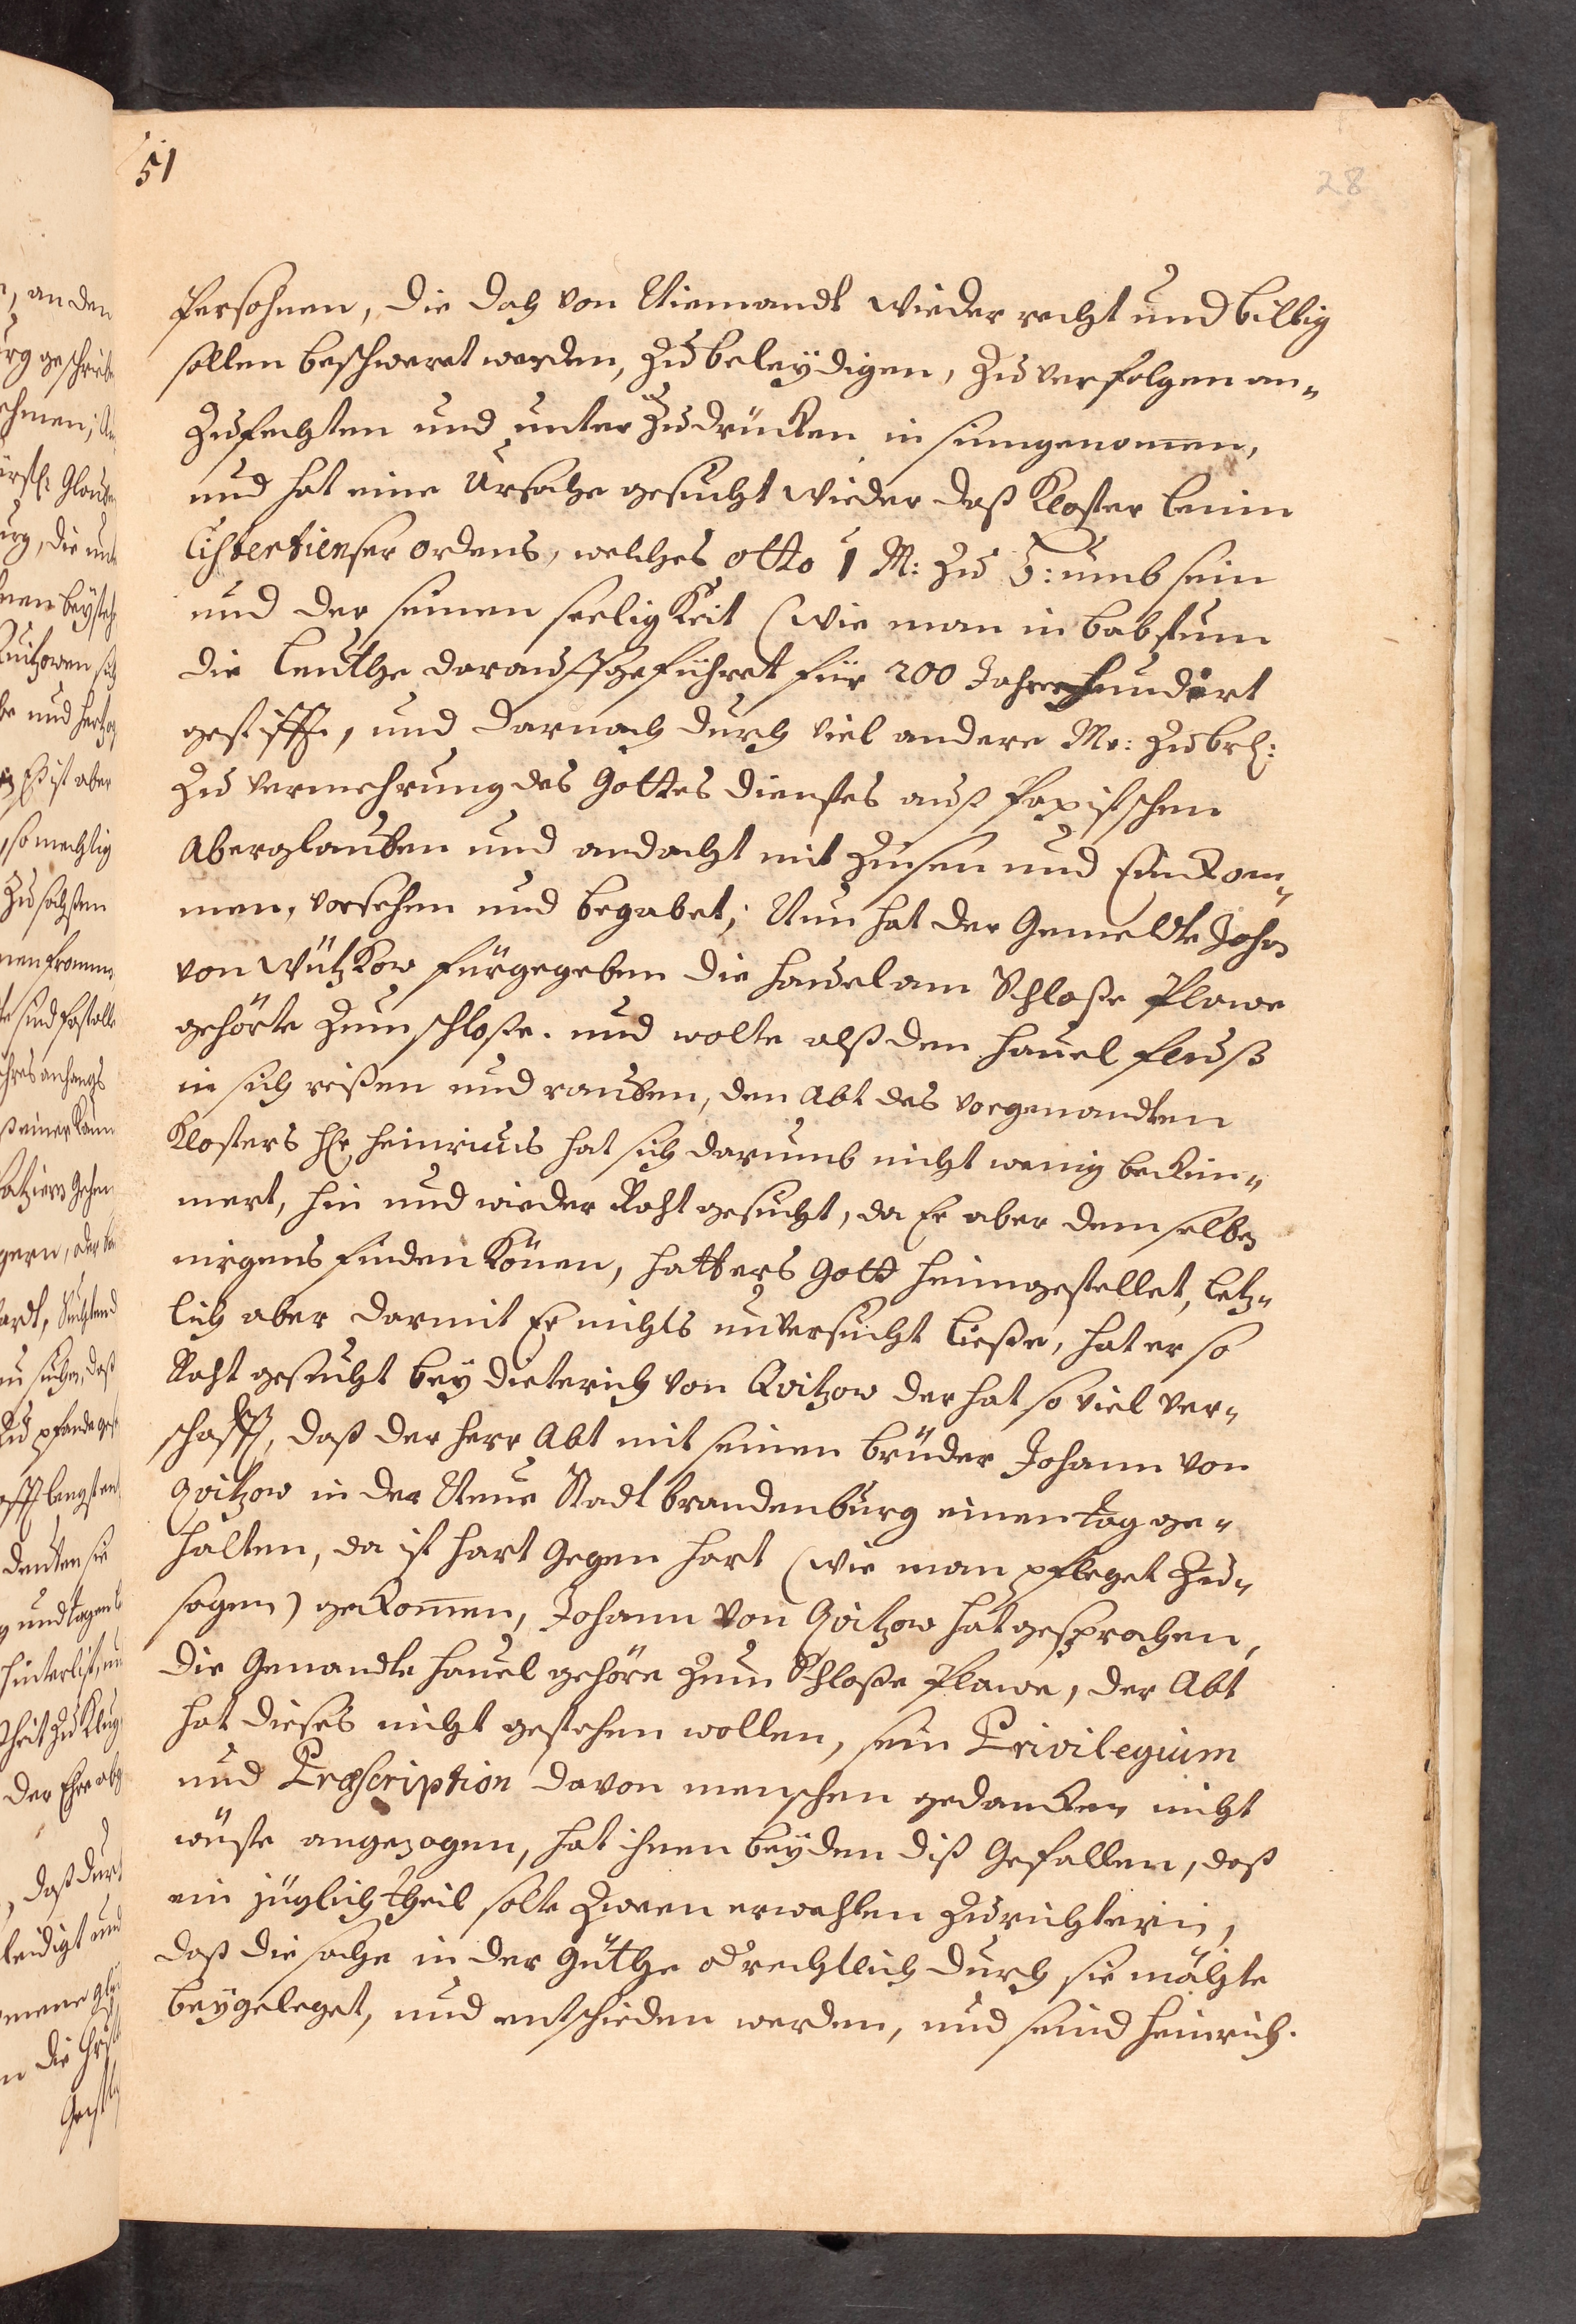 51
28
Persohnen, die doch von Niemandt wieder recht und billig
sollen beschweret werden, zu beleydigen, zu verfolgen an-
zufechten und unter zu drücken in sinn genommen,
und hat eine Ursache gesucht wieder daß Kloster Lenin
Cistertienser ordens, welches otto 1 M: zu B: umb sein
und der seinen seeligkeit (wie man in babstum
die Leuthe darauff geführet für 200 Jahren hundert
gestifft, und darnach durch viel andere Mr: zu br:
zu vermehrung des Gottes dienstes auß Papistschen
Aberglauben und andacht mit Zinsen und Einkom-
men, vorsehen und begabet; Nun hat der Gemeldte Johan
von Wützkow fürgegeben die havel am Schloße Plawe
gehörte zum schloße. und wolte alß den havel fluß
in sich reißen und rauben, den Abt des vorgenandten
Klosters hr heinricus hat sich darumb nicht wenig bekum-
mert, hin und wieder Raht gesucht, da Er aber demselben
nirgens finden können, hatt ers Gott heimgestellet, letz-
lich aber darmit Er nichts unversucht ließe, hat er so
Raht gesucht bey dieterich von Qvitzow der hat so viel ver-
schafft, daß der herr Abt mit seinen brüder Johann von
Qvitzow in der Neue Stadt brandenburg einen tag ge-
halten, da ist hart gegen hart (wie man pfleget zu-
sagen) gekommen, Johann von Qvitzow hat gesprochen,
die Genandte havel gehöre zum Schloße Plawe, der Abt
hat dieses nicht gestehen wollen, sein Privilegium
und Præscription davon menschen gedancken nicht
wüste angezogen, hat ihnen beyden diß Gefallen, daß
ein jüglich theil solte zween erwehlen zu richtern,
daß die sache in der Güthe od rechtlich durch sie möchte
beygeleget, und entschieden werden, und seind heinrich.